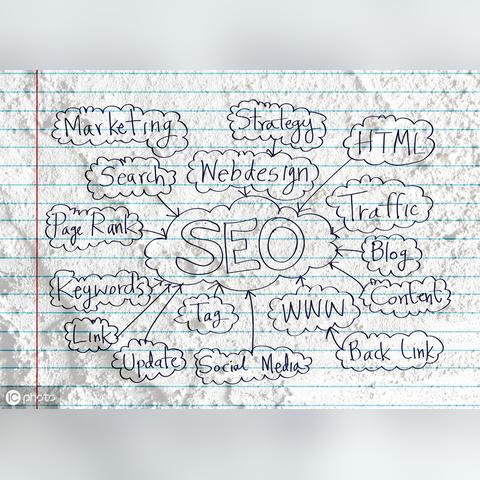 Marketing
Strategy
HTML
Search
Webdesign
Traffic
Page Rank
SEO
Blog
Keywords
Content
Tag
WWW
Link
Back Link
Update
Social Media
IC photo